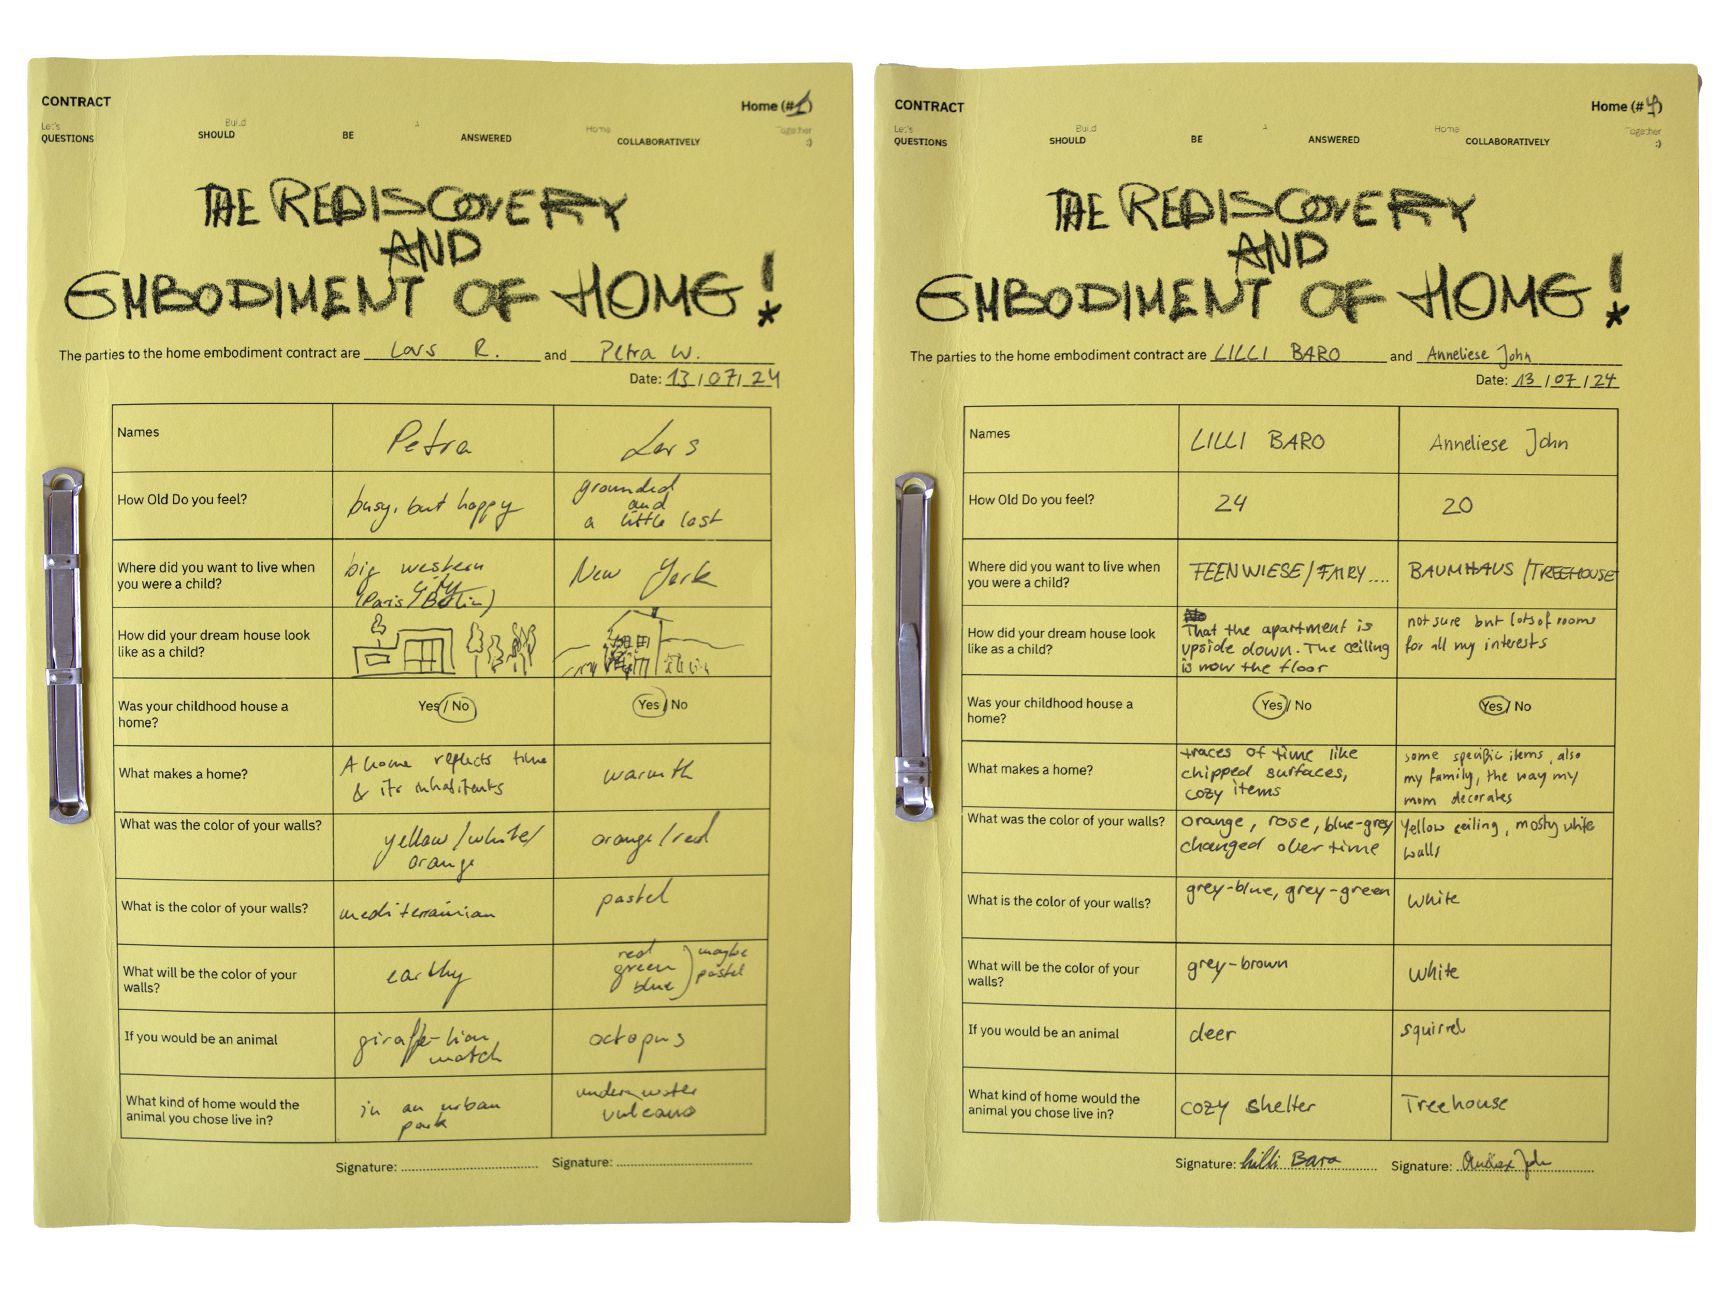 CONTRACT
Home (#1)
Let's Build A Home Together
QUESTIONS SHOULD BE ANSWERED COLLABORATIVELY :)
THE REDISCOVERY
AND
EMBODIMENT OF HOME!*
The parties to the home embodiment contract are Lars R. and Petra W.
Date: 13/07/24
Names Petra Lars
How Old Do you feel? busy, but happy grounded
and
a little lost
Where did you want to live when
you were a child? big western
city
(Paris/Berlin) New York
How did your dream house look
like as a child?
Was your childhood house a
home? Yes/No Yes/No
What makes a home? A home reflects time
& its inhabitents warmth
What was the color of your walls? yellow/white/
orange orange/red
What is the color of your walls? mediterrainian pastel
What will be the color of your
walls? earthy red
green
blue maybe
pastel
If you would be an animal giraffe-lion
match octopus
What kind of home would the
animal you chose live in? in an urban
park underwater
vulcano
Signature: Signature:
CONTRACT
Home (#4)
Let's Build A Home Together
QUESTIONS SHOULD BE ANSWERED COLLABORATIVELY :)
THE REDISCOVERY
AND
EMBODIMENT OF HOME!*
The parties to the home embodiment contract are LILLI BARO and Anneliese John
Date: 13/07/24
Names LILLI BARO Anneliese John
How Old Do you feel? 24 20
Where did you want to live when
you were a child? FEENWIESE/FAIRY.... BAUMHAUS/TREEHOUSE
How did your dream house look
like as a child? That the apartment is
upside down. The ceiling
is now the floor not sure but lots of rooms
for all my interests
Was your childhood house a
home? Yes/No Yes/No
What makes a home? traces of time like
chipped surfaces,
cozy items some specific items, also
my family, the way my
mom decorates
What was the color of your walls? orange, rose, blue-grey
changed over time Yellow ceiling, mosty white
walls
What is the color of your walls? grey-blue, grey-green white
What will be the color of your
walls? grey-brown white
If you would be an animal deer squirrel
What kind of home would the
animal you chose live in? cozy shelter Treehouse
Signature: Lilli Baro Signature: